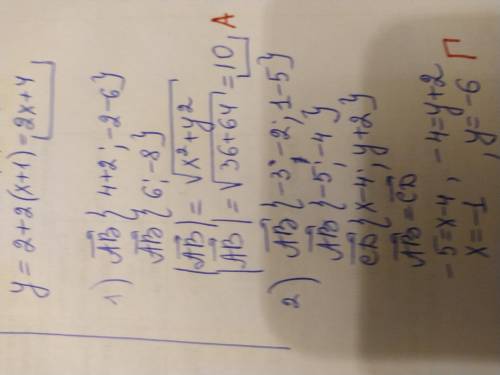 y = 2+2(x+1) = 2x+4
1) AB { 4+2 ; -2-6 }
AB { 6 ; -8 }
|AB| = √x²+y²
|AB| = √36+64 = 10 А
2) AB { -3-2 ; 1-5 }
AB { -5 ; -4 }
CD { x-4 ; y+2 }
AB = CD
-5 = x-4 , -4 = y+2
x = -1 , y = -6 Г